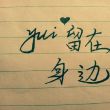 yui留在
身边